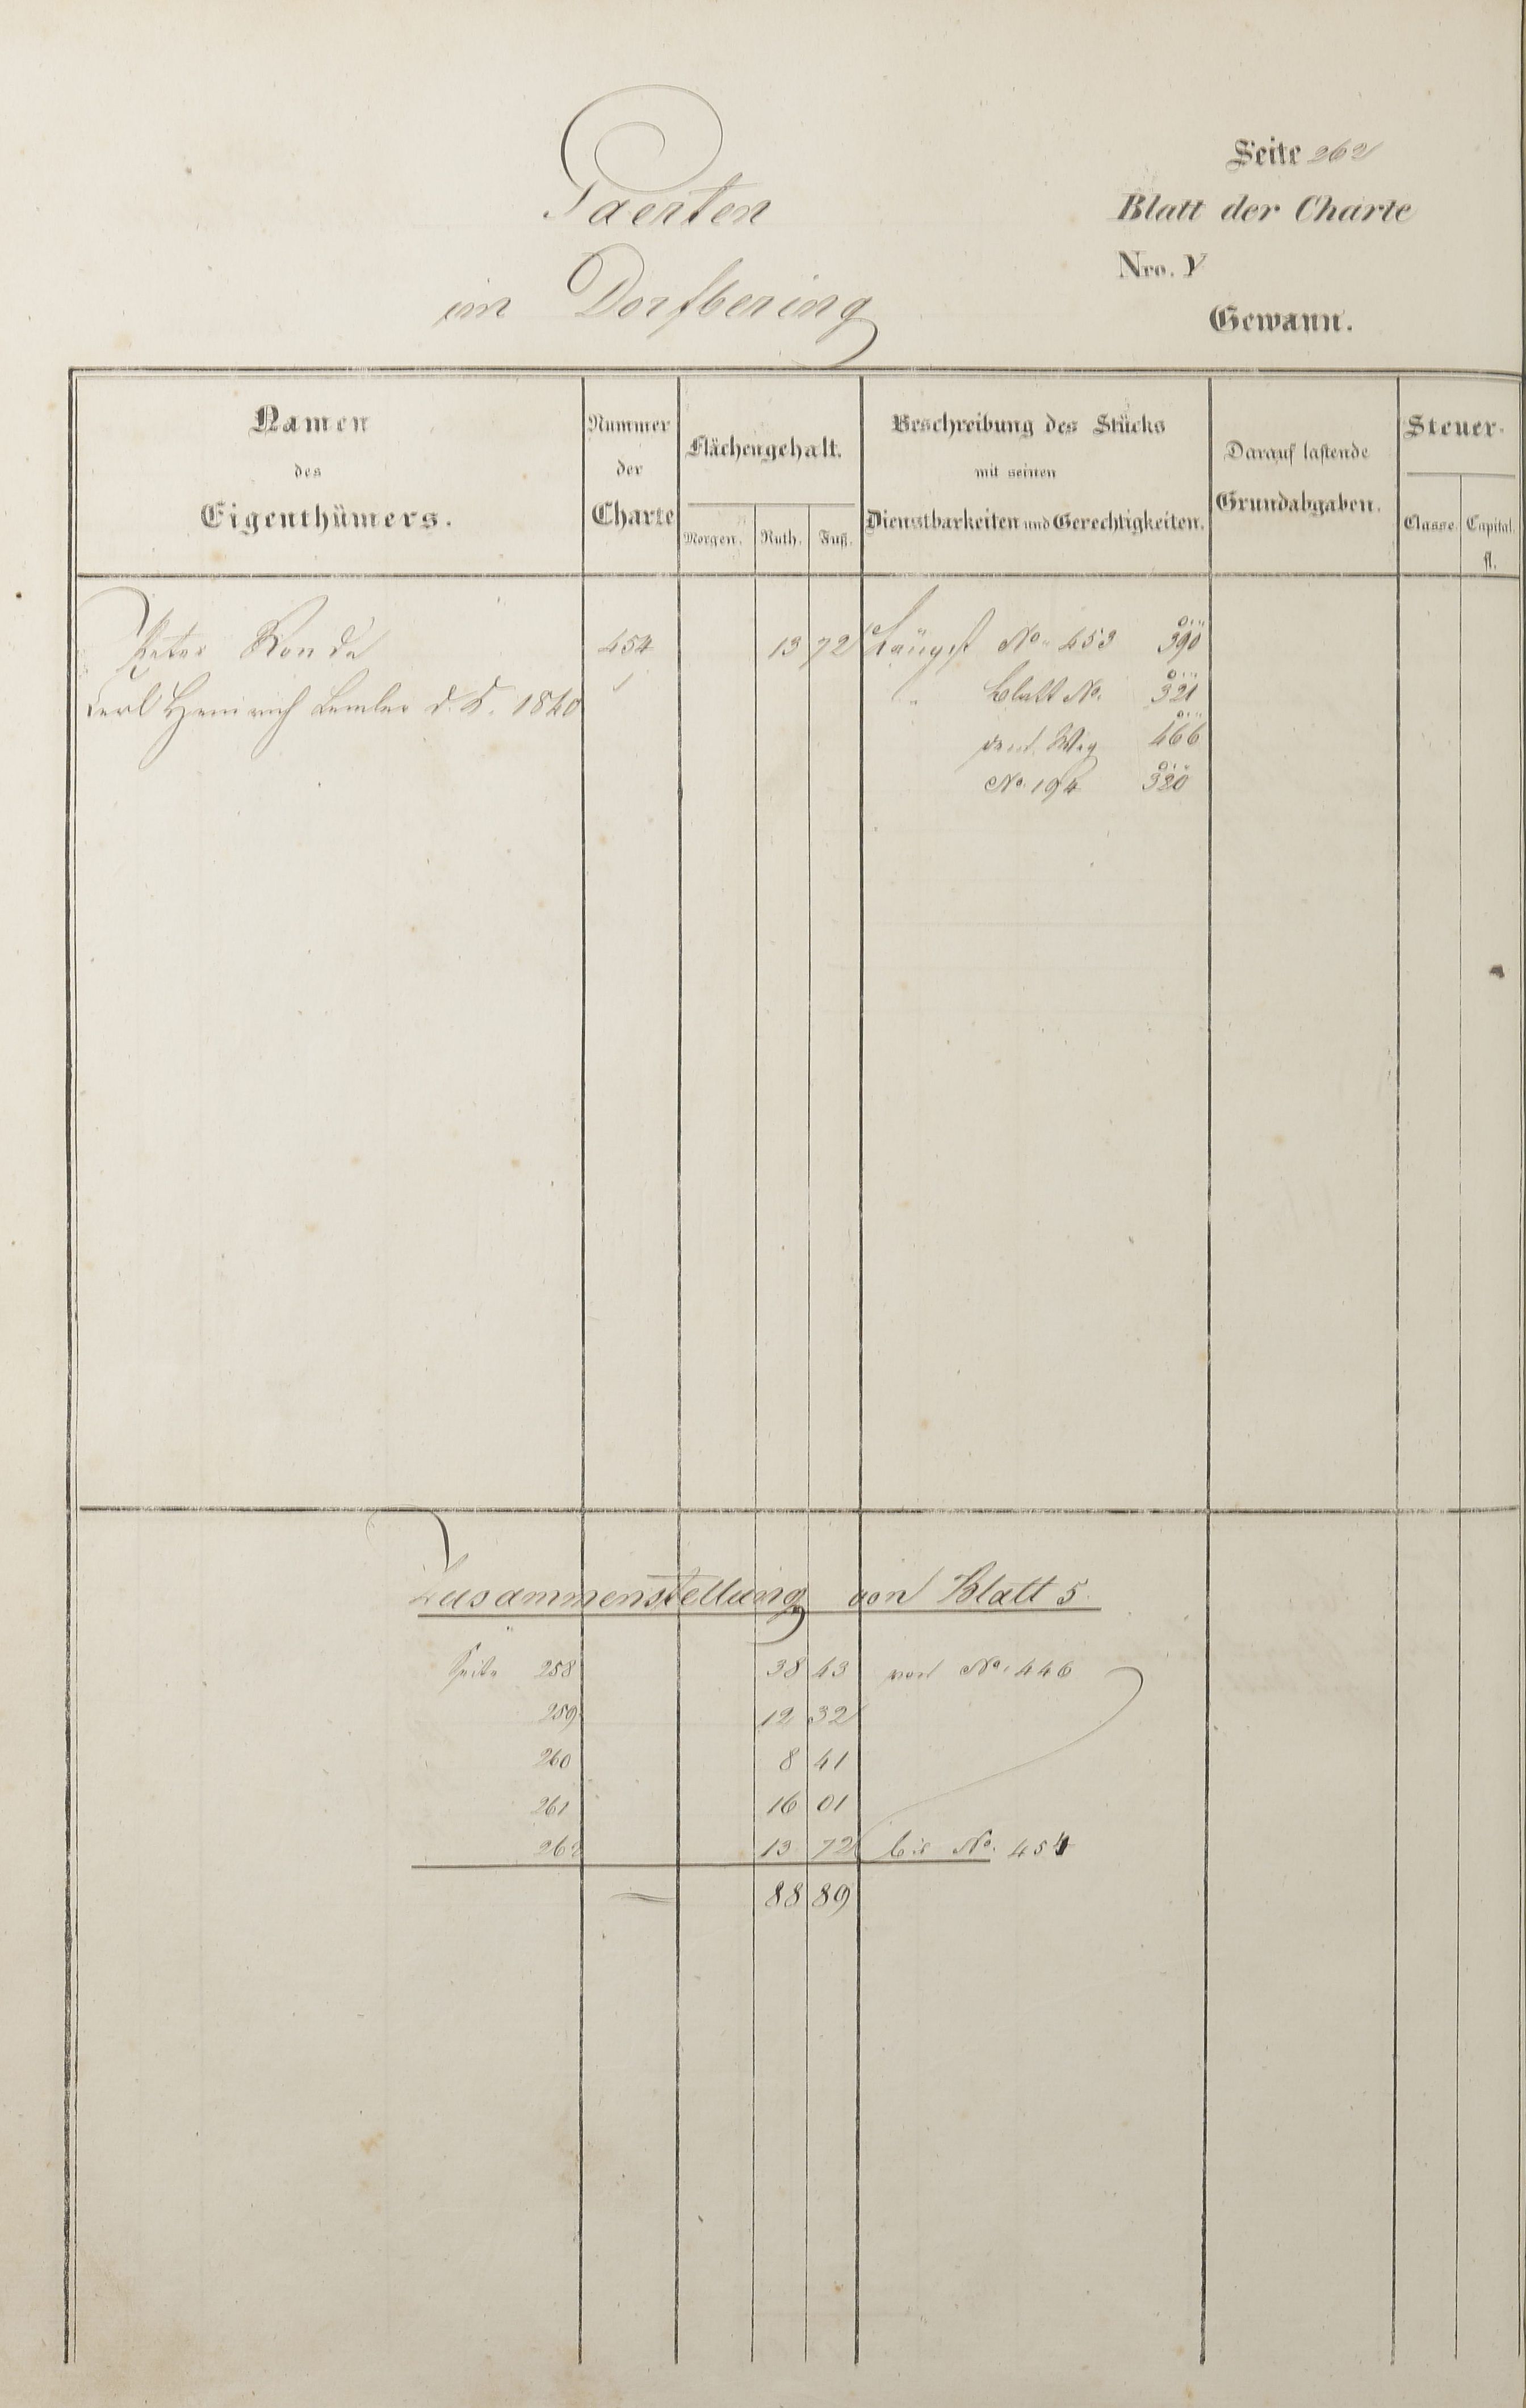 Seite 262
Gaerten
Blatt der Charte
im Dorfbering
Nro. V
Gewann.
Namen
des
Eigenthümers.
Nummer
der
Charte
Flächengehalt.
Morgen. Ruth. Fuß.
Beschreibung des Stücks
mit seinen
Dienstbarkeiten und Gerechtigkeiten.
Darauf lastende
Grundabgaben.
Steuer-
Classe. Capital.
fl.
Peter Ronde 454 13 72 Längst No. 453 390
Carl Heinrich d. d. 1840 " Blatt No. 321
Weg 466
No. 194 320
Zusammenstellung von Blatt 5.
Seite 258 38 43 von No. 446
259 12 32
260 8 41
261 16 01
262 13 72 bis No. 454
88 89